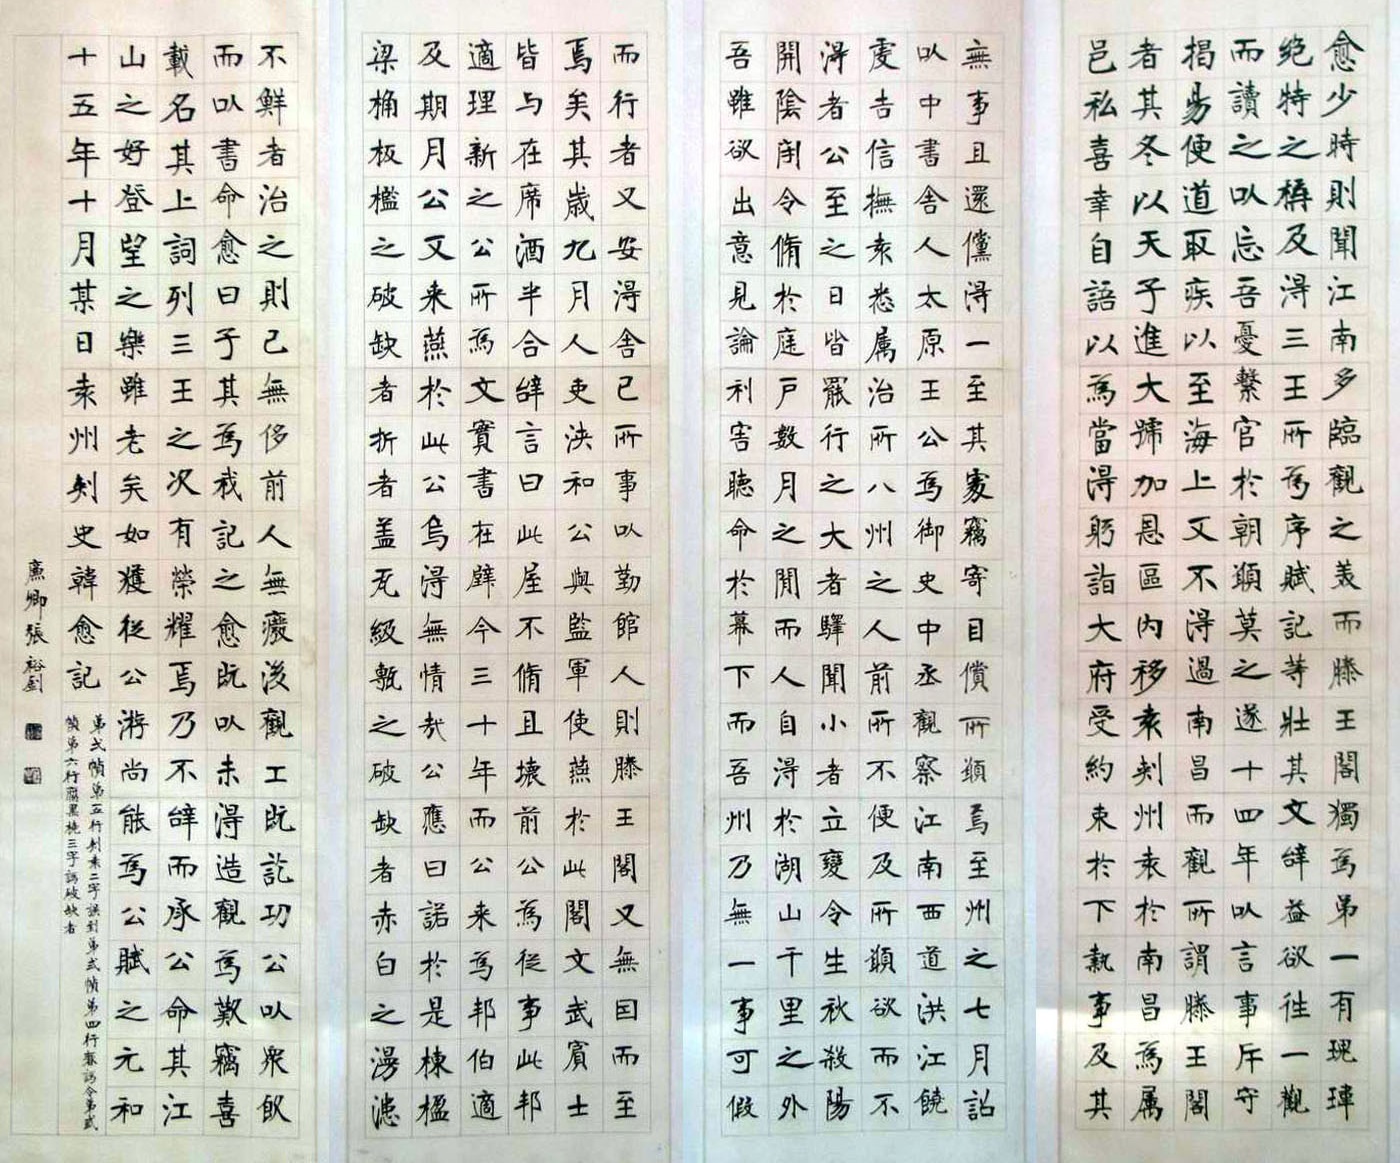 愈少時則聞江南多臨觀之美而滕王閣獨為第一有瑰瑋
絕特之稱及得三王所為序賦記等壯其文辭益欲往一觀
而讀之以忘吾憂繫官於朝願莫之遂十四年以言事斥守
揭昜便道取疾以至海上又不得過南昌而觀所謂滕王閣
者其冬以天子進大號加恩區內移袁刺州袁於南昌為属
邑私喜幸自語以為當得躬詣大府受約束於下執事及其
無事且還儻得一至其處竊寄目償所願焉至州之七月詔
以中書舍人太原王公為御史中丞觀察江南西道洪江饒
虔吉信撫袁悉属治所八州之人前所不便及所願欲而不
得者公至之日皆罷行之大者驛聞小者立變令生秋殺陽
開陰閉令脩於庭戶數月之間而人自得於湖山千里之外
吾雖欲出意見論利害聽命於幕下而吾州乃無一事可假
而行者又安得舍己所事以勤館人則滕王閣又無因而至
焉矣其歲九月人吏浹和公與監軍使燕於此閣文武賓士
皆与在席酒半合辭言曰此屋不脩且壞前公為從事此邦
適理新之公所為文實書在壁今三十年而公来為邦伯適
及期月公又来燕於此公烏得無情哉公應曰諾於是棟楹
梁桷板檻之破缺者折者蓋瓦級甎之破缺者赤白之漫漶
不鮮者治之則已無侈前人無廢後觀工既訖功公以眾飲
而以書命愈曰子其為我記之愈既以未得造觀為歎竊喜
載名其上詞列三王之次有榮耀焉乃不辭而承公命其江
山之好登望之樂雖老矣如獲從公游尚能為公賦之元和
十五年十月某日袁州刺史韓愈記
第弍幀第五行刺袁二字誤到第弍幀第四行春誤令第弍
幀第六行腐黑撓三字誤破缺者
廉卿張裕釗